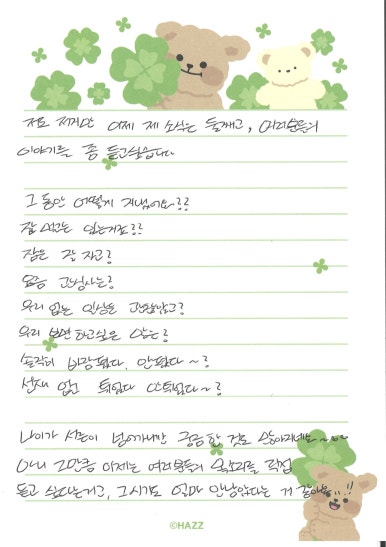 저도 저지만 이제 제 소식은 둘째고, 여러분들의
이야기를 좀 듣고싶습니다
그동안 어떻게 지냈어요??
잘 먹고는 있는거죠??
잠은 잘 자고?
요즘 고민사는?
우리 없는 인생은 괜찮았고?
우리 보면 하고싶은 말은?
솔직히 바람폈다, 안폈다~?
선재 업고 튀었다 안튀었다~?
나이가 서른이 넘어가니깐 궁금한 것도 많아지네요~~~
아니 그만큼 이제는 여러분들의 목소리를 직접
듣고 싶다는거죠, 그 시기도 얼마 안남았다는 거 같아요..!!
©HAZZ